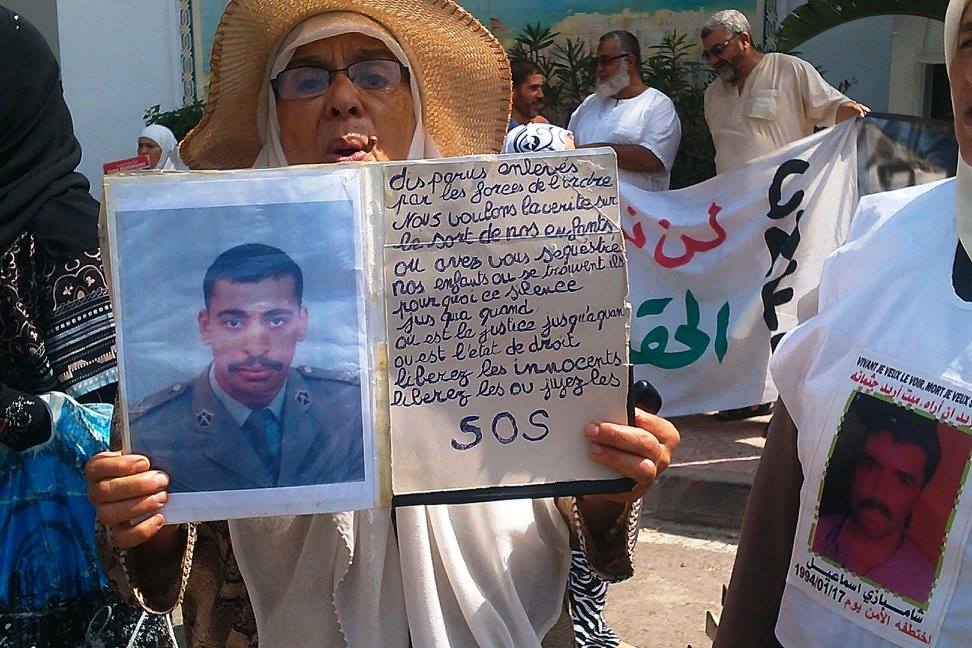 disparus enlevés
par les forces de l'ordre
Nous voulons la verité sur
le sort de nos enfants
ou avez vous séquestré
nos enfants ou se trouvent ils
pourquoi ce silence
jus qua quand
ou est la justice jusqu'a quan
ou est l'état de droit
liberez les innocents
liberez les ou jujez les
SOS
لن
الحق
VIVANT JE VEUX LE VOIR, MORT JE VEUX S
اريد ان أراه، ميت أريد جثمانه
اسماعيل
اختطفه الأمن يوم 1994/01/17